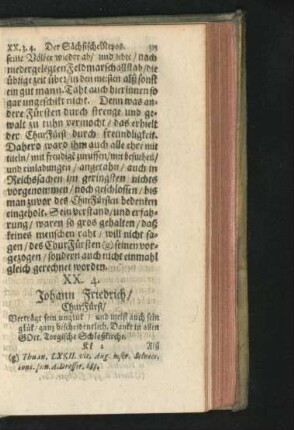 XX. 3. 4. Der Sächsische Nepos.
seine Völker wieder ab/ und lebte/ nach
niedergelegten Feldmarschallstab/ die
übrige zeit über/ in den meisten alß sonst
ein gut mann. Täht auch hierinnen so
gar ungeschikt nicht. Denn was an-
dere Fürsten durch strenge und ge-
walt zu tuhn vermocht/ das erhielt
der ChurFürst durch freundligkeit.
Dahero ward ihm auch alle ehre mit
titeln/ mit freudigē zuruffen/ mit besuchen/
und einladungen/ angetahn/ auch in
Reichssachen im geringsten nichts
vorgenommen/ noch geschlossen/ bis
man zuvor des ChurFürsten bedenken
eingeholt. Sein verstand/ und erfah-
rung/ waren so gros gehalten/ daß
keines menschen raht/ will nicht sa-
gen/ des ChurFürsten (g) seinen vor-
gezogen/ sondern auch nicht einmahl
gleich gerechnet worden.
XX. 4.
Johann Friedrich/
ChurFürst/
Verträgt sein unglük/ und meist auch sein
glük/ ganz bescheidentlich. Danket in allen
GOtt. Torgische Schloßkirche.
Kk 2 Alß
(g) Thuan. LXXII. vit. Aug.